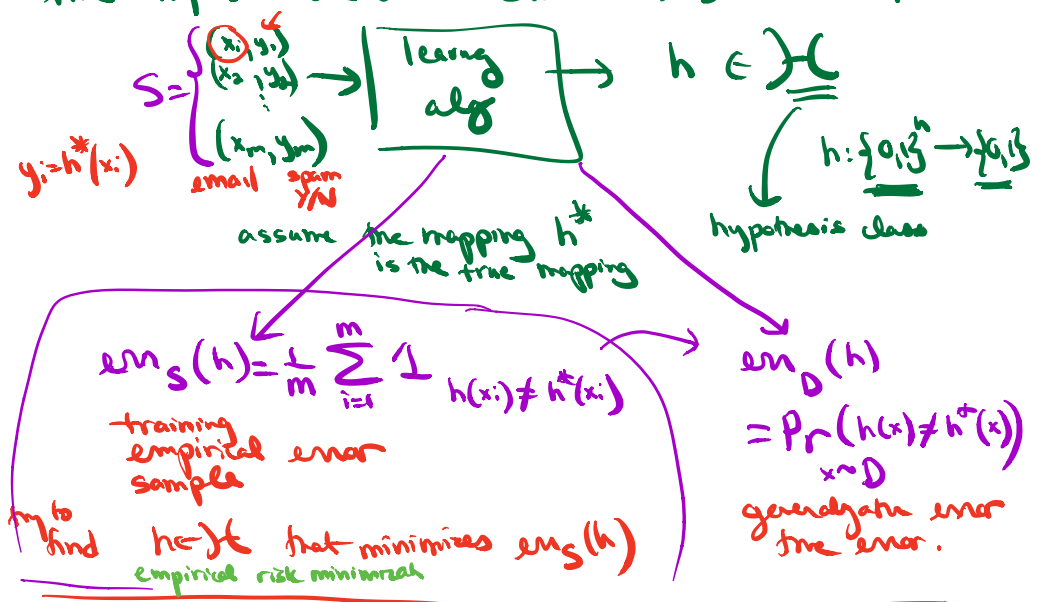 S = { (x₁, y₁)
(x₂, y₂)
⋮
(xₘ, yₘ)
email spam
Y/N
yᵢ=h*(xᵢ)
learng
alg
h ∈ H
h: {0,1}ⁿ → {0,1}
hypothesis class
assume the mapping h*
is the true mapping
err_S(h) = 1/m ∑_{i=1}^{m} 1_{h(xᵢ)≠h*(xᵢ)}
training
empirical error
sample
try to
find h∈H that minimizes err_S(h)
empirical risk minimizah
err_D(h)
= Pr_{x~D}(h(x)≠h*(x))
generalizatn error
true error.